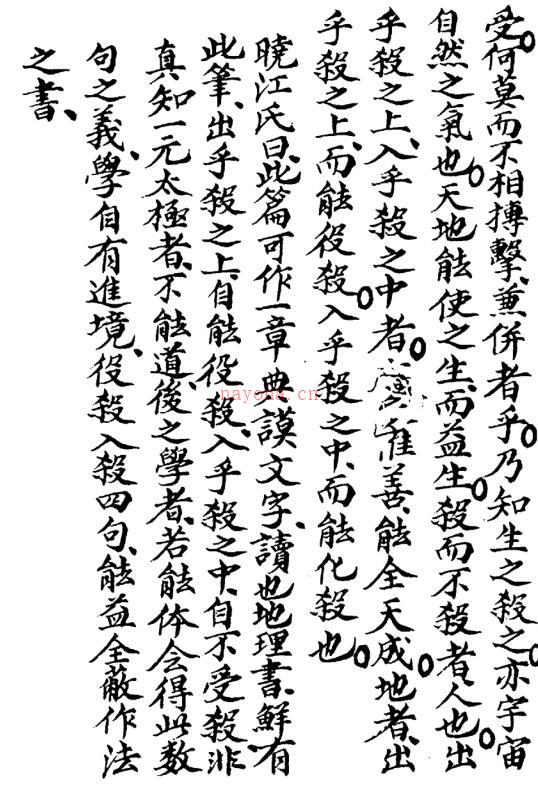 受何莫而不相搏擊兼併者乎乃知生之殺之亦宇宙
自然之氣也天地能使之生而益生殺而不殺者人也出
乎殺之上入乎殺之中者惟善能全天成地者出
乎殺之上而能役殺入乎殺之中而能化殺也
曉江氏曰此篇可作一章典謨文字讀也地理書鮮有
此筆出乎殺之上自能役殺入乎殺之中自不受殺非
真知一元太極者不能道後之學者若能体会得此数
句之義學自有進境役殺入殺四句能益全蔽作法
之書
nayona.cn